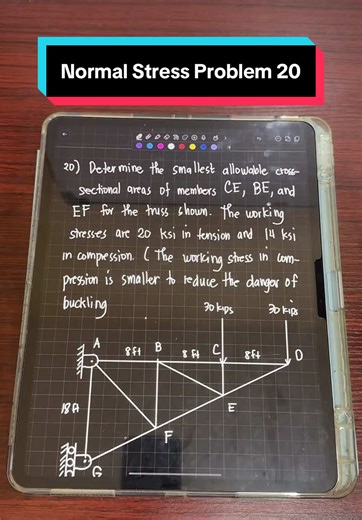 Normal Stress Problem 20
20) Determine the smallest allowable cross-
sectional areas of members CE, BE, and
EF for the truss shown. The working
stresses are 20 ksi in tension and 14 ksi
in compession. (The working stress in com-
pression is smaller to reduce the danger of
buckling
30 kips 30 kips
A B C D
8 ft 8 ft 8 ft
18 ft
E
F
G